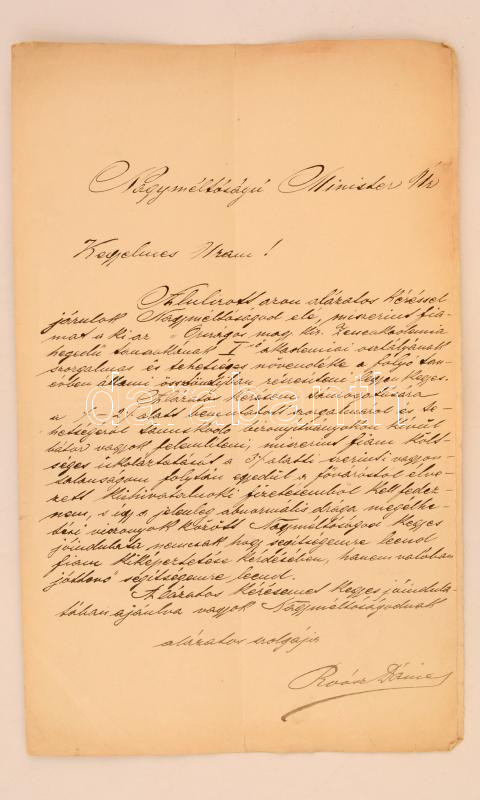 Nagyméltóságú Minister Úr
Kegyelmes Uram!
Alulirott azon alázatos kéréssel
járulok Nagyméltóságod elé, miszerint fia-
mat a ki az Országos mag. kir. Zeneakadémia
hegedű tanszakának I ső akadémiai osztályának
szorgalmas és tehetséges növendéke a folyó tan-
évben állami ösztöndíjban részesíteni kegyeskedjék.
Alázatos kérésem támogatására
a 1 - 2 alatt szorgalmát és te-
hetségét tanusitó bizonyitványokon kivül
bátor vagyok felemliteni, miszerint fiam költ-
séges iskoláztatását a 3 alatti szerinti vagyon-
talanságom folytán egyedül a fővárostól élve-
zett kishivatalnoki fizetésemből kell fedez-
nem, s igy a jelenleg abnormális drága megélhe-
tési viszonyok között Nagyméltóságod kegyes
jóindulata nemcsak hogy segitségemre leend
fiam kiképeztetése kérdésében, hanem valóban
jóltevő segitségemre leend.
Alázatos kérésemet kegyes jóindula-
tában ajánlva vagyok Nagyméltóságodnak
alázatos szolgája
Dénes
darabanth